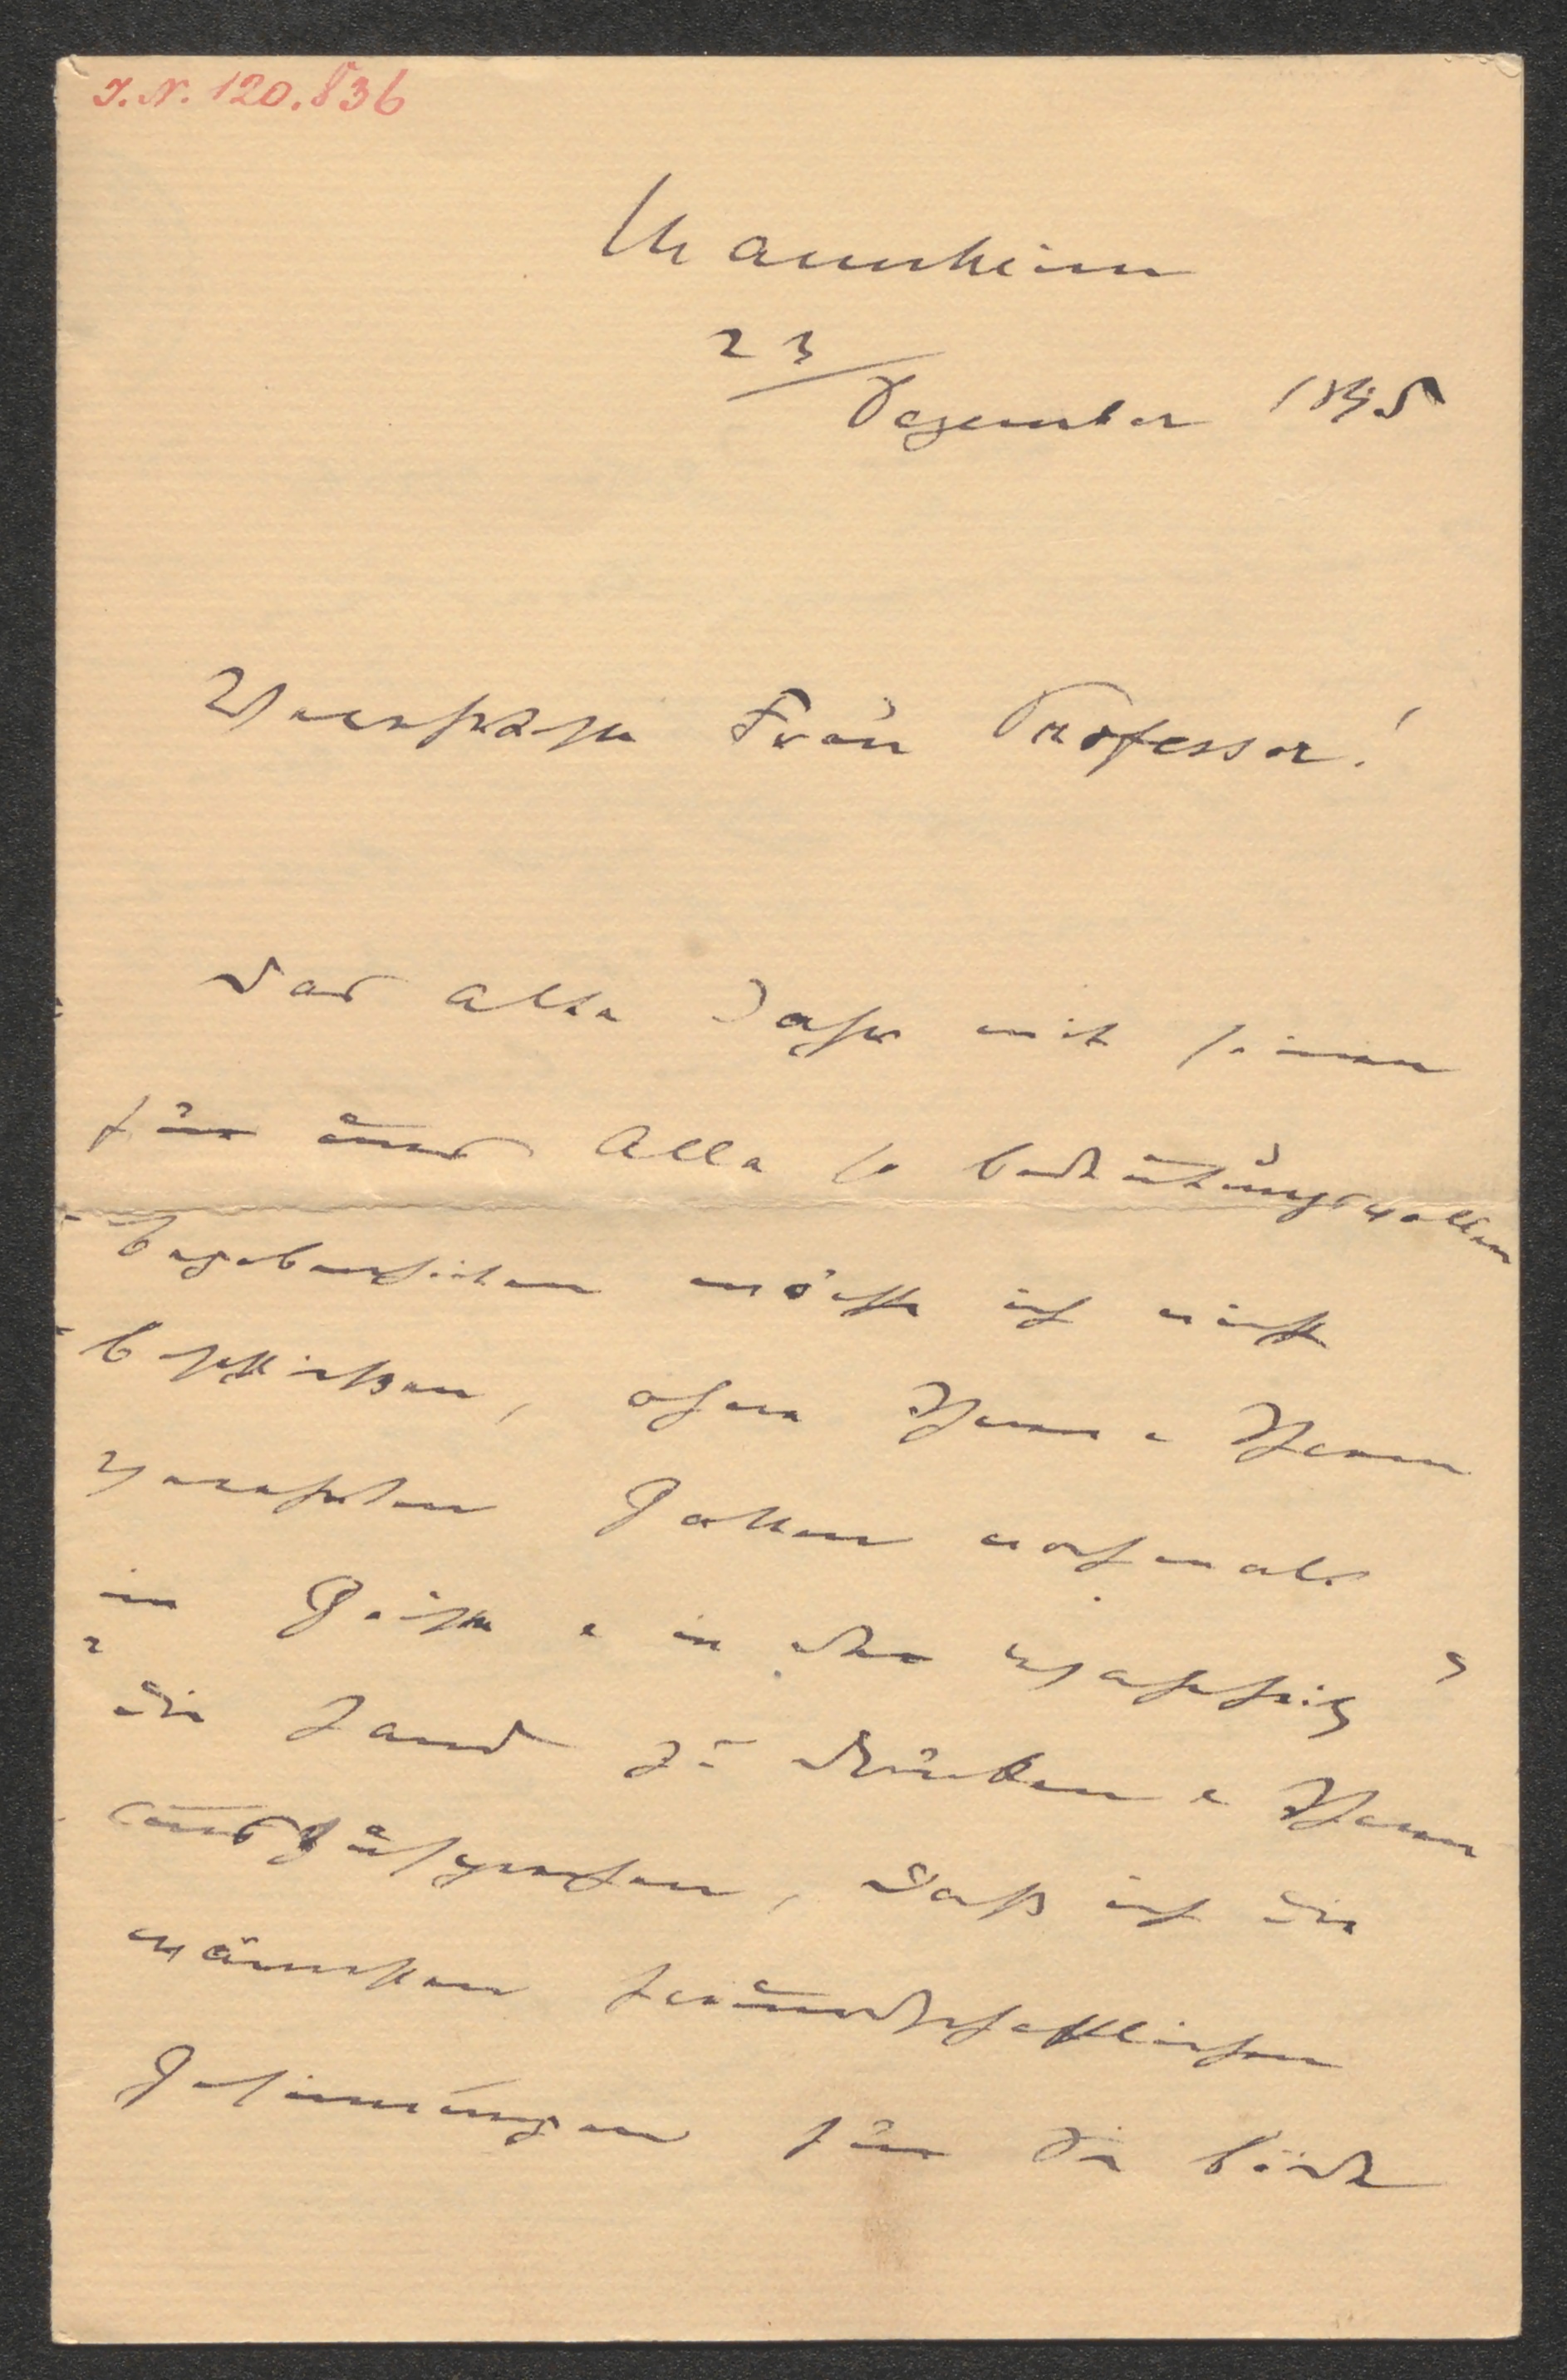 I.N. 120.836
Mannheim
23/Dezember 1895
Verehrteste Frau Professor!
Das alte Jahr mit seinen
für uns Alle so bedeutungsvollen
Begebenheiten möchte ich nicht
beschließen, ohne Ihnen & Ihrem
verehrten Gatten nochmals
im Geiste & in der Wahrheit
die Hand zu drücken & Ihnen
auszusprechen, daß ich die
wärmsten freundschaftlichen
Gesinnungen für Sie beide